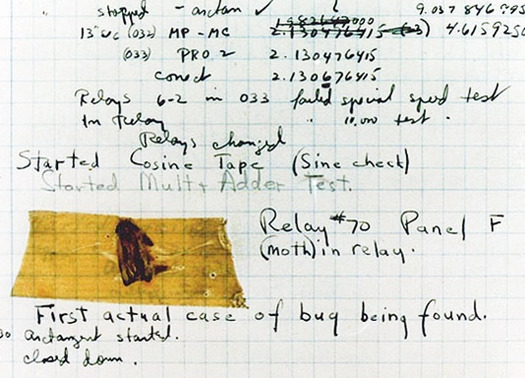 stopped - arctan ✓
9.037 846 995
13"uc (032) MP - MC 2.130476415 (-3) 4.6159250
(033) PRO 2 2.130476415
conect 2.130676415
Relays 6-2 in 033 failed special speed test
In Relay " 10.000 test .
Relays changed
Started Cosine Tape (Sine check)
Started Mult + Adder Test.
Relay #70 Panel F
(moth) in relay.
First actual case of bug being found.
arctangent started.
closed down .